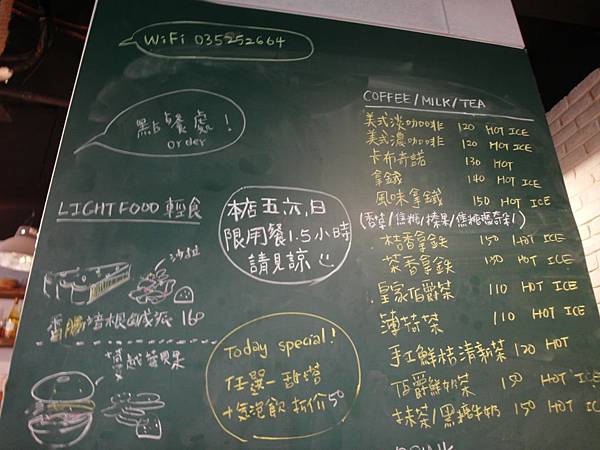 WiFi 035252664
點餐處!
order
LIGHT FOOD 輕食
沙拉
香腸培根鹹派 160
蔓越莓貝果
本店五、六、日
限用餐1.5小時
請見諒
Today special!
任選一甜塔
+ 飲 折價50
COFFEE/MILK/TEA
美式淡咖啡 120 HOT ICE
美式濃咖啡 120 HOT ICE
卡布奇諾 130 HOT
拿鐵 140 HOT ICE
風味拿鐵 150 HOT ICE
(香草/焦糖/榛果/焦糖瑪奇朵)
桔香拿鉄 150 HOT ICE
茶香拿鉄 150 HOT ICE
皇家伯爵茶 110 HOT ICE
薄荷茶 110 HOT ICE
手工鮮桔清新茶 120 HOT
伯爵鮮奶茶 150 HOT ICE
抹茶/黑糖牛奶 150 HOT ICE
DRINK